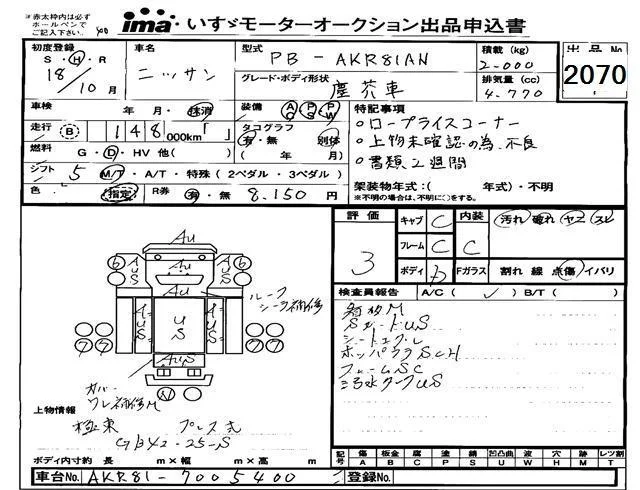 ※赤太枠内は必ず
ボールペンで
ご記入下さい。
ima いすゞモーターオークション出品申込書
初度登録
S・H・R
18/10月
車名
ニッサン
型式
PB-AKR81AN
積載(kg)
2.000
出品No
2070
グレード・ボディ形状
塵芥車
排気量(cc)
4.770
車検 年 月・抹消
装備 AC PS PW
特記事項
走行 B 148,000km「 」
タコグラフ
有・無 別体
( 年 月)
○ロープライスコーナー
○上物未確認の為、不良
○書類2週間
燃料 G・D・HV 他( )
シフト 5 M/T・A/T・特殊(2ペダル・3ペダル)
色 指定 R券 有・無 8.150円
架装物年式:( 年式)・不明
※不明の場合は、不明に○をする。
評価
3
キャブ C 内装 汚れ 破れ ヤニ スレ
フレーム C C
ボディ D Fガラス 割れ 線 点傷 イバリ
検査員報告 A/C( ✓ ) B/T( )
SガードUS
ホッパウラSCH
フレームSC
汚水タンクUS
Au
AUS
AUS
Au
US
AUS
AUS
AuS
6
6
7 7
7 7
N
ルーフ
シーラ補修
カバー
ワレ補修M
上物情報
極東 プレス式
GB42-25-S
ボディ内寸約 長 m×幅 m×高 m
記号 傷A 板金B 腐C 塗P 錆S 凹凸曲U 波W 穴H 跡M レツ割T
車台No. AKR81-7005400
登録No.